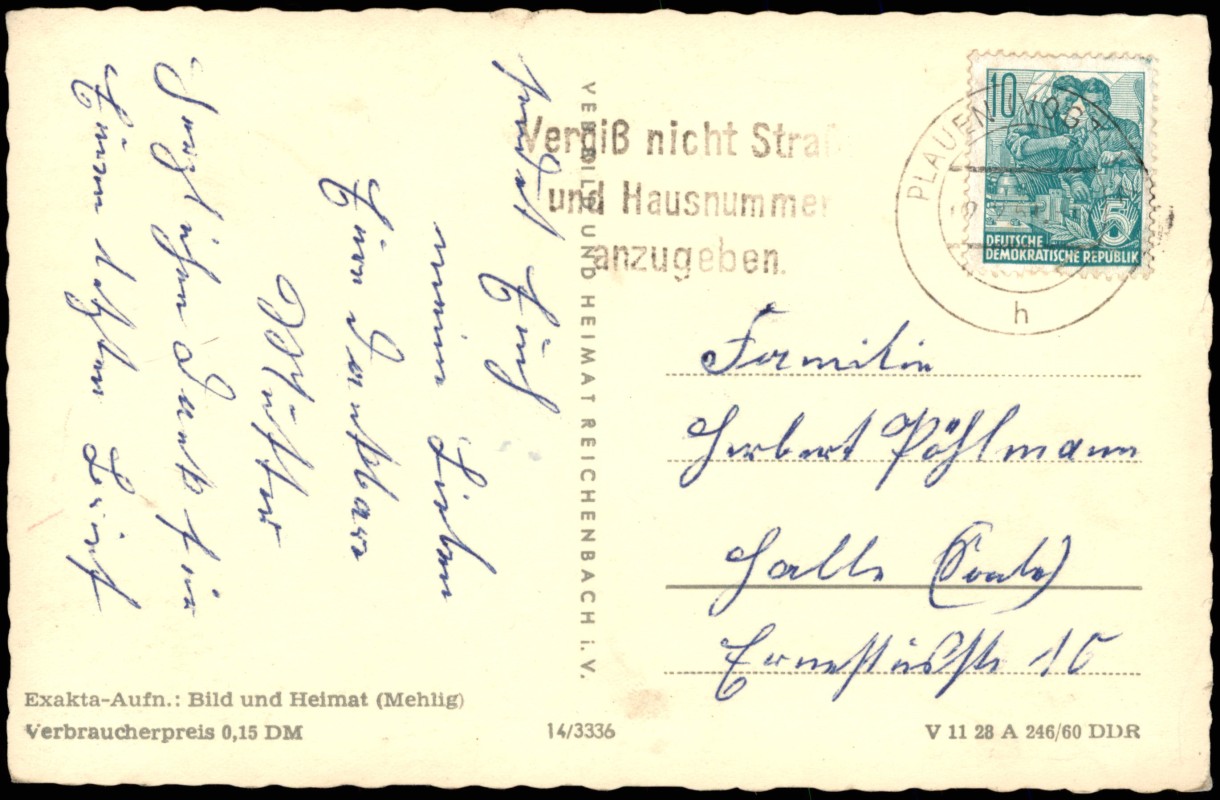 10
PLAUEN (VOGTL
5
DEUTSCHE
DEMOKRATISCHE REPUBLIK
h
Vergiß nicht Straß
und Hausnummer
anzugeben.
sendet Euch
meine Lieben
Eure Dankbare
Mutter
Dank für
Euren letzten Brief
VEB BILD UND HEIMAT REICHENBACH i. V.
Familie
Herbert Pöhlmann
Halle (Saale)
Ernestusstr. 10
Exakta-Aufn.: Bild und Heimat (Mehlig)
Verbraucherpreis 0,15 DM
14/3336
V 11 28 A 246/60 DDR